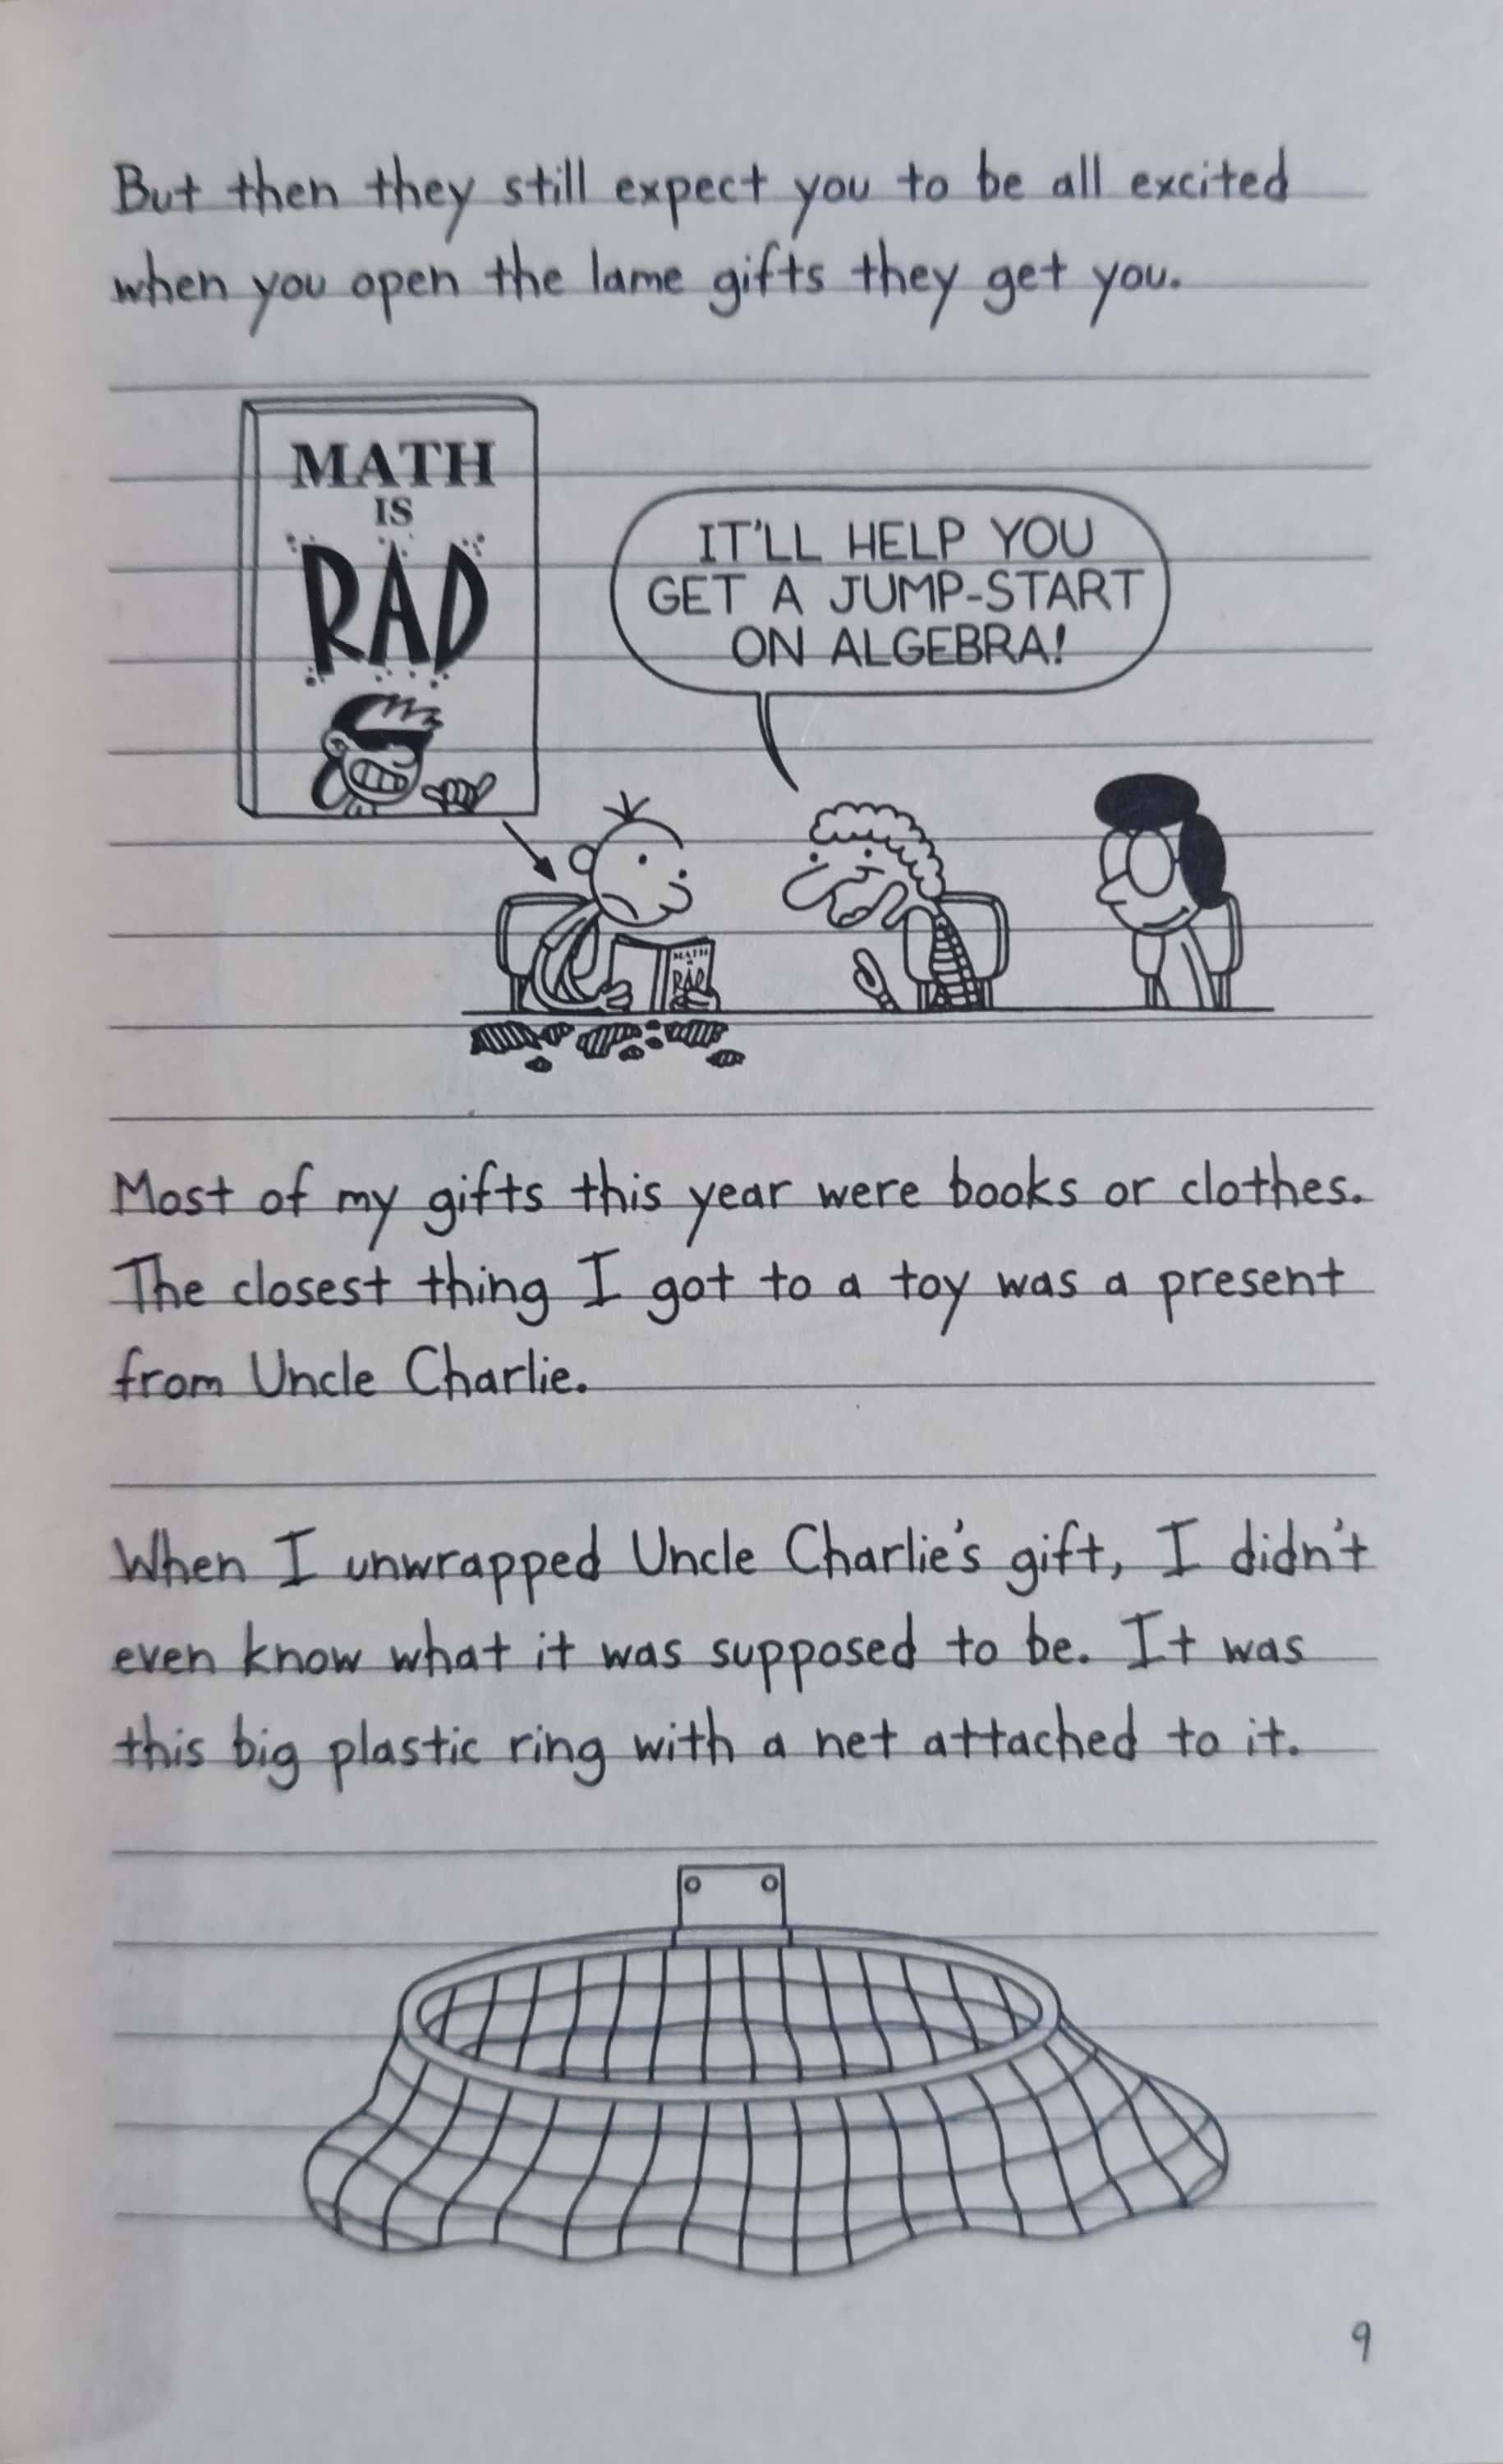 But then they still expect you to be all excited
when you open the lame gifts they get you.
MATH
IS
RAD
IT'LL HELP YOU
GET A JUMP-START
ON ALGEBRA!
MATH
IS
RAD
Most of my gifts this year were books or clothes.
The closest thing I got to a toy was a present
from Uncle Charlie.
When I unwrapped Uncle Charlie's gift, I didn't
even know what it was supposed to be. It was
this big plastic ring with a net attached to it.
9